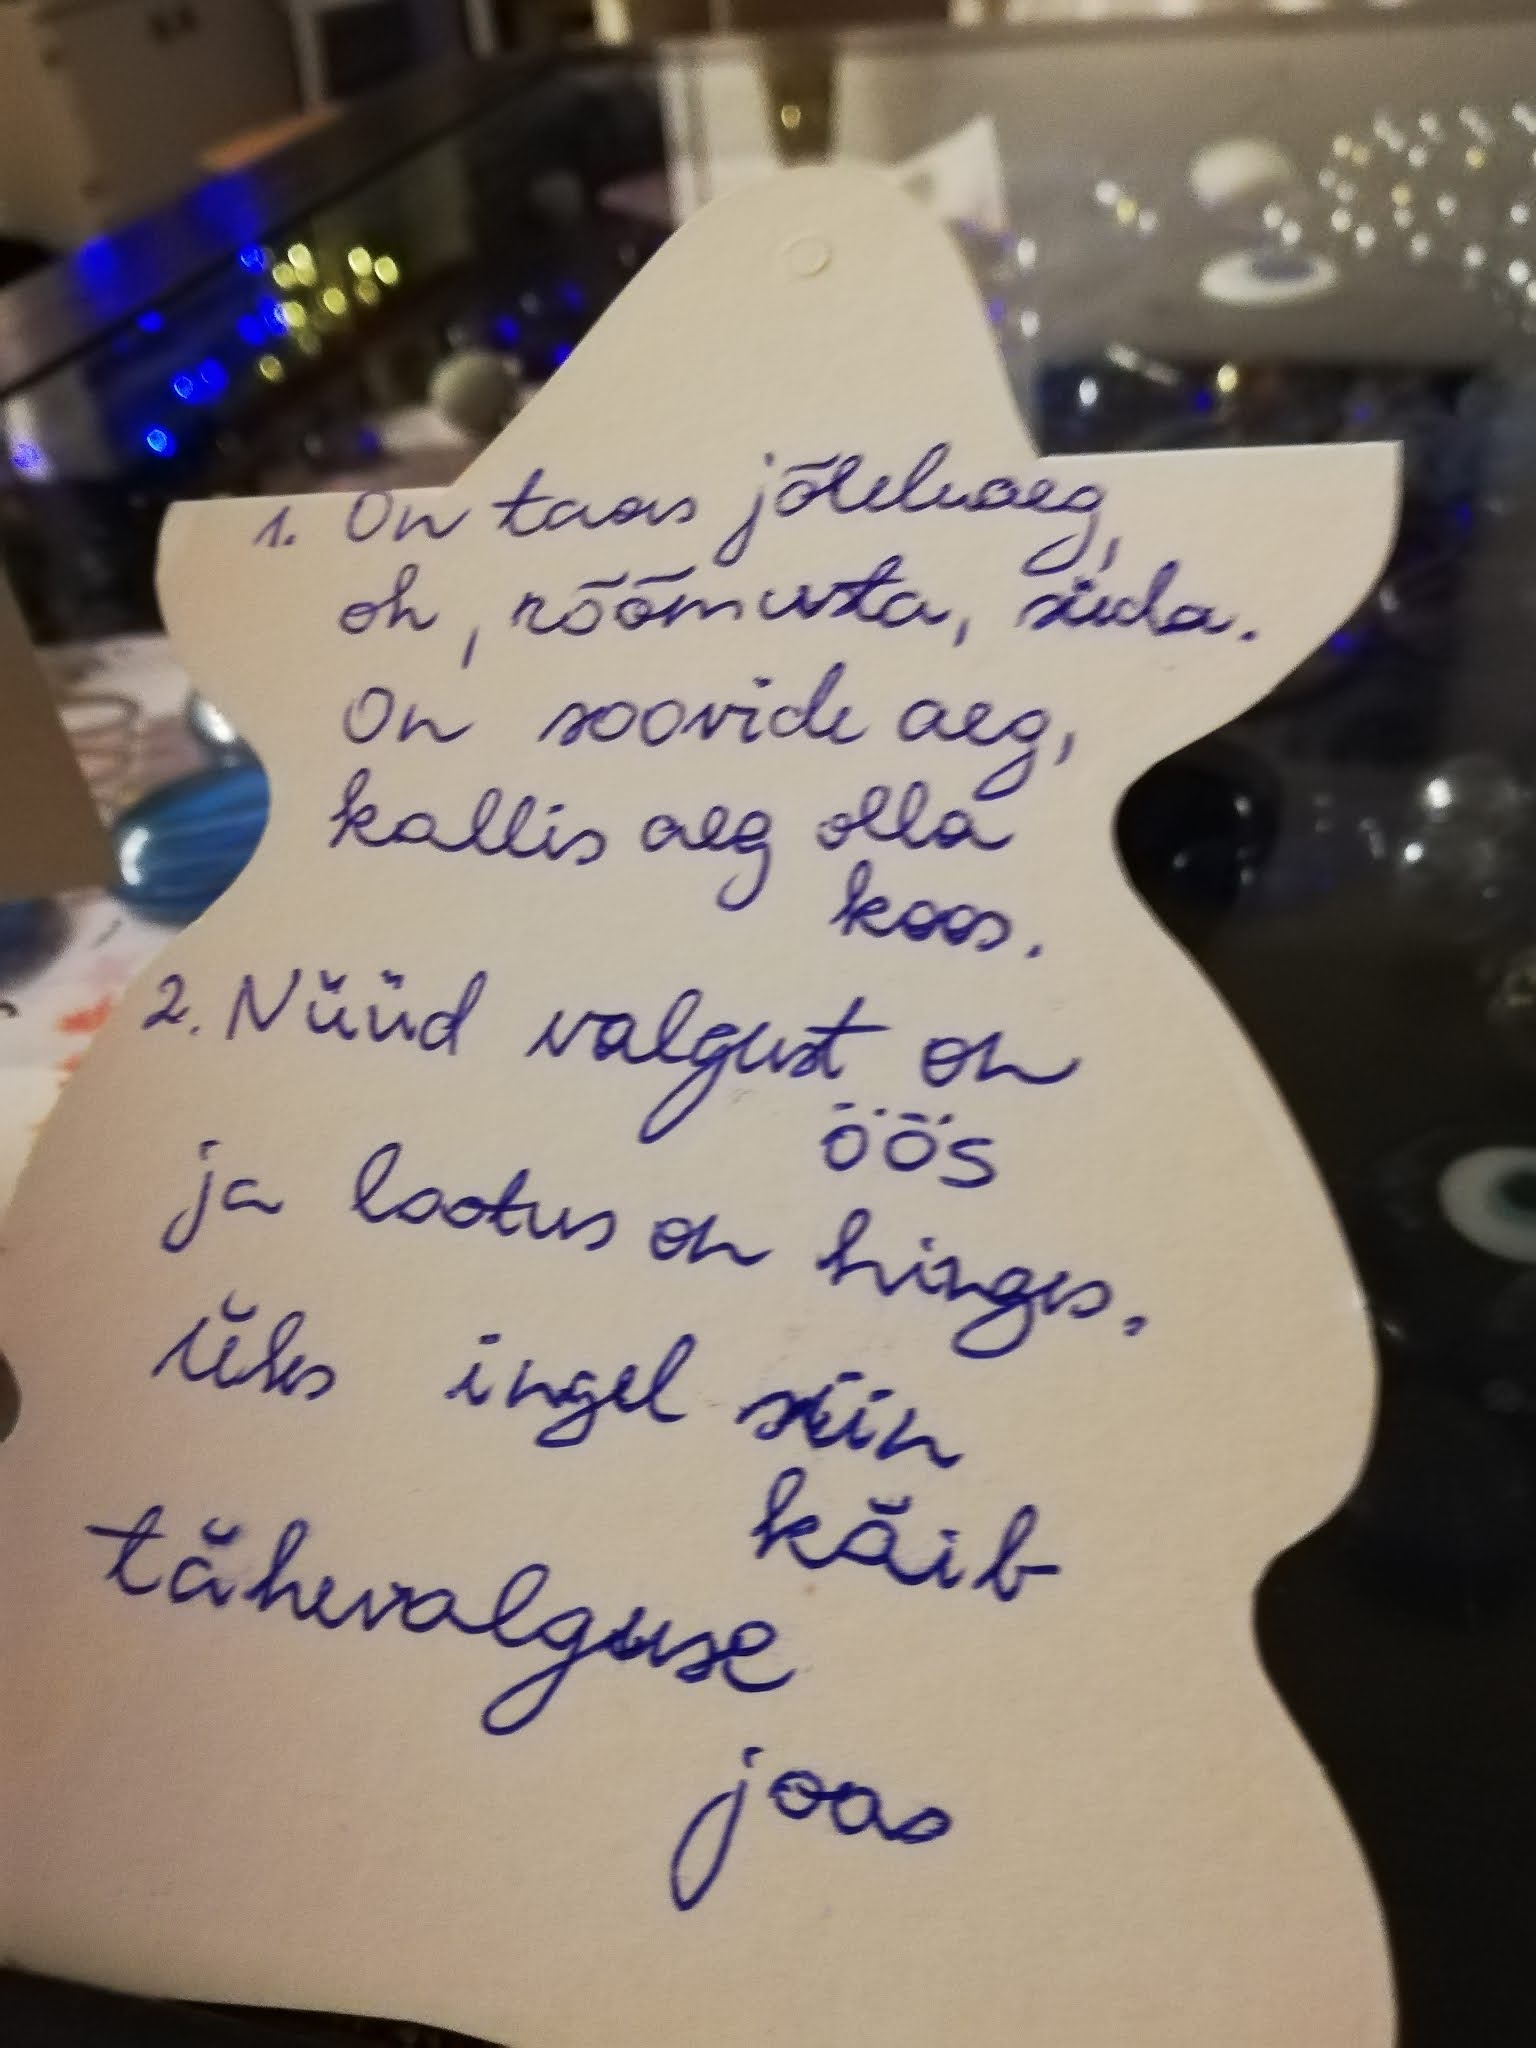 1. On taas jõuluaeg,
oh, rõõmusta, süda.
On soovide aeg,
kallis aeg olla
koos.
2. Nüüd valgust on
öös
ja lootus on hinges.
Üks ingel siin
käib
tähevalguse
joas